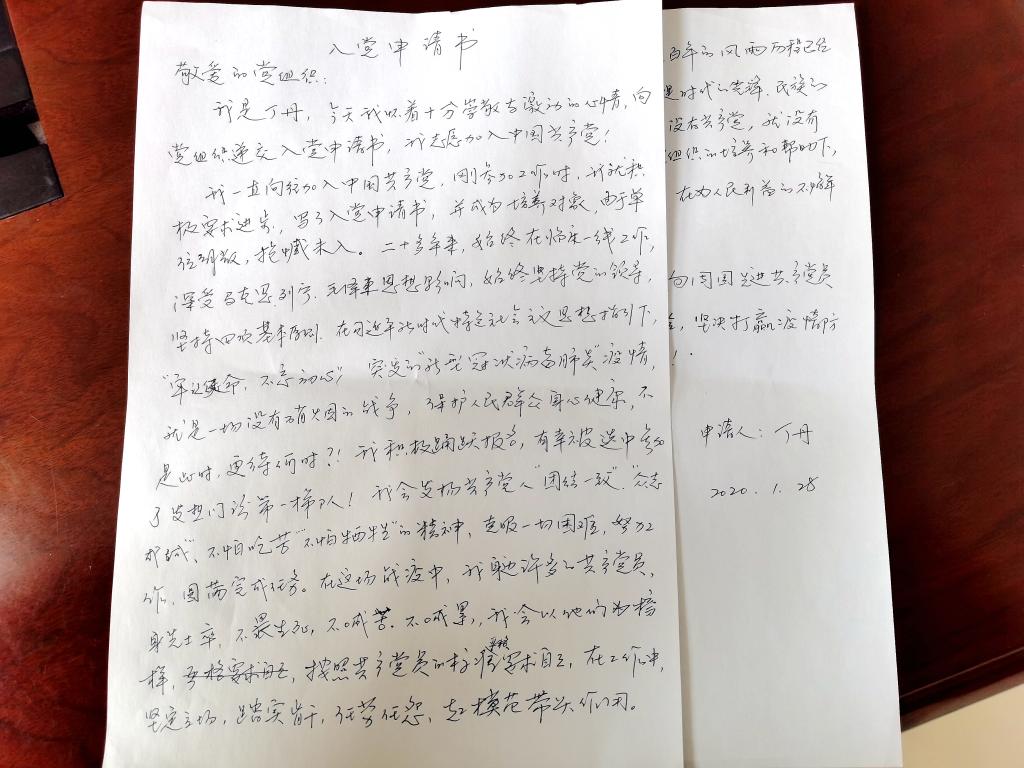 入党申请书
敬爱的党组织：
我是丁丹，今天我怀着十分崇敬与激动的心情，向
党组织递交入党申请书，我志愿加入中国共产党！
我一直向往加入中国共产党，刚参加工作时，我就积
极要求进步，写了入党申请书，并成为培养对象，由于单
位解散，抱憾未入。二十多年来，始终在临床一线工作，
深受马克思列宁、毛泽东思想影响，始终坚持党的领导，
坚持四项基本原则。在习近平新时代特色社会主义思想指引下，
“牢记使命，不忘初心”，突发的“新型冠状病毒肺炎”疫情，
就是一场没有硝烟的战争，保护人民群众身心健康，不
是此时，更待何时？！我积极踊跃报名，有幸被选中参加
了发热门诊第一梯队！我会发扬共产党人“团结一致”、“众志
成城”、不怕吃苦”“不怕牺牲”的精神，克服一切困难，努力工
作，圆满完成任务。在这场战疫中，我身边许多的共产党员，
身先士卒，不畏生死，不喊苦、不喊累，我会以他们为榜
样，严格要求自己，按照共产党员的标准严格要求自己，在工作中，
坚定立场，踏实肯干，任劳任怨，起模范带头作用。
百年的风雨历程已经
是时代的先锋、民族的
没有共产党，就没有
组织的培养和帮助下，
在为人民利益的不懈
向周围先进共产党员
坚决打赢疫情防
！
申请人：丁丹
2020.1.28